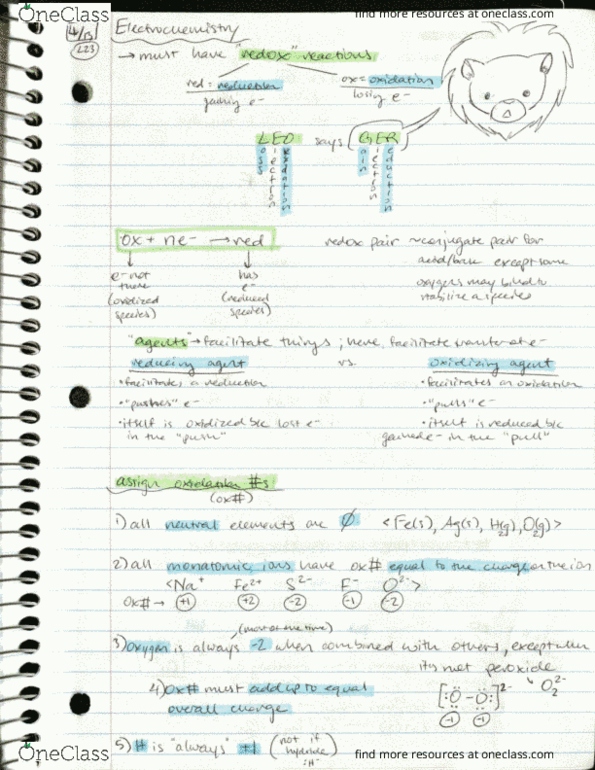 OneClass
find more resources at oneclass.com
4/15
L23
Electrochemistry
→ must have "redox" reactions
red = reduction
gaining e-
ox = oxidation
losing e-
LEO says GER
oss
lectron
xidation
ain
lectron
eduction
ox + ne- → red
e- not there (oxidized species)
has e- (reduced species)
redox pair ~conjugate pair for
acid/base except some
oxygens may bind to
stabilize a species
"agents" → facilitate things; here, facilitate transfer of e-
reducing agent vs. oxidizing agent
• facilitates a reduction
• "pushes" e-
• itself is oxidized b/c lost e-
in the "push"
• facilitates an oxidation
• "pulls" e-
• itself is reduced b/c
gained e- in the "pull"
assign oxidation #s
(ox#)
1) all neutral elements are Ø <Fe(s), Ag(s), H2(g), O2(g)>
2) all monatomic ions have ox# equal to the charge on the ion
<Na+ Fe2+ S2- F- O2->
ox# → +1 +2 -2 -1 -2
(most of the time)
3) oxygen is always -2 when combined with others, except when
it's not peroxide
O2 2-
4) Ox# must add up to equal
overall charge
[:O-O:]2-
-1 -1
5) H is "always" +1 (not if hydride :H-)
OneClass
find more resources at oneclass.com